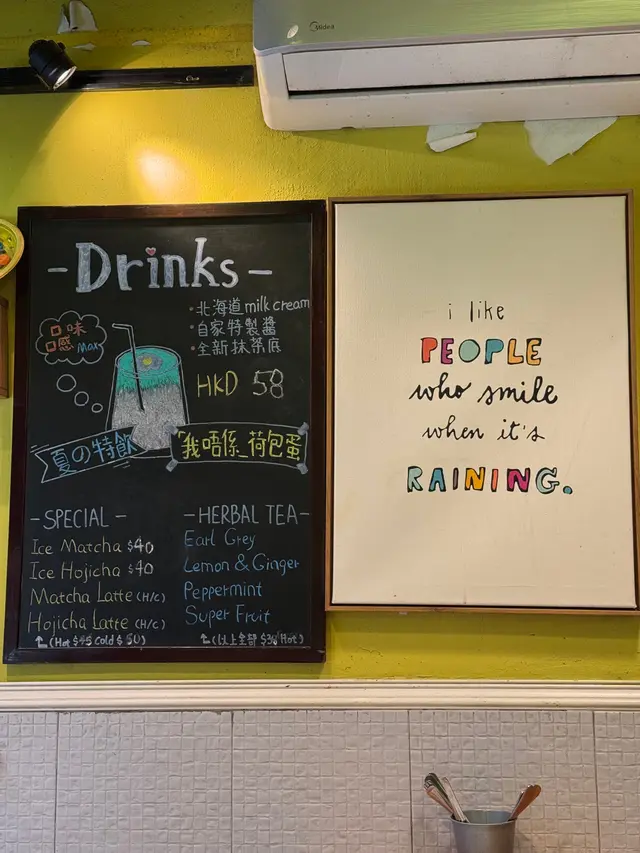 Midea
-Drinks-
·北海道milk cream
·自家特製醬
·全新抹茶底
口味
口感 Max
HKD 58
夏の特飲
"我唔係_荷包蛋
-SPECIAL-
Ice Matcha $40
Ice Hojicha $40
Matcha Latte (H/C)
Hojicha Latte (H/C)
(Hot $45 Cold $50)
-HERBAL TEA-
Earl Grey
Lemon & Ginger
Peppermint
Super Fruit
(以上全部 $36 Hot)
i like
PEOPLE
who smile
when it's
RAINING.